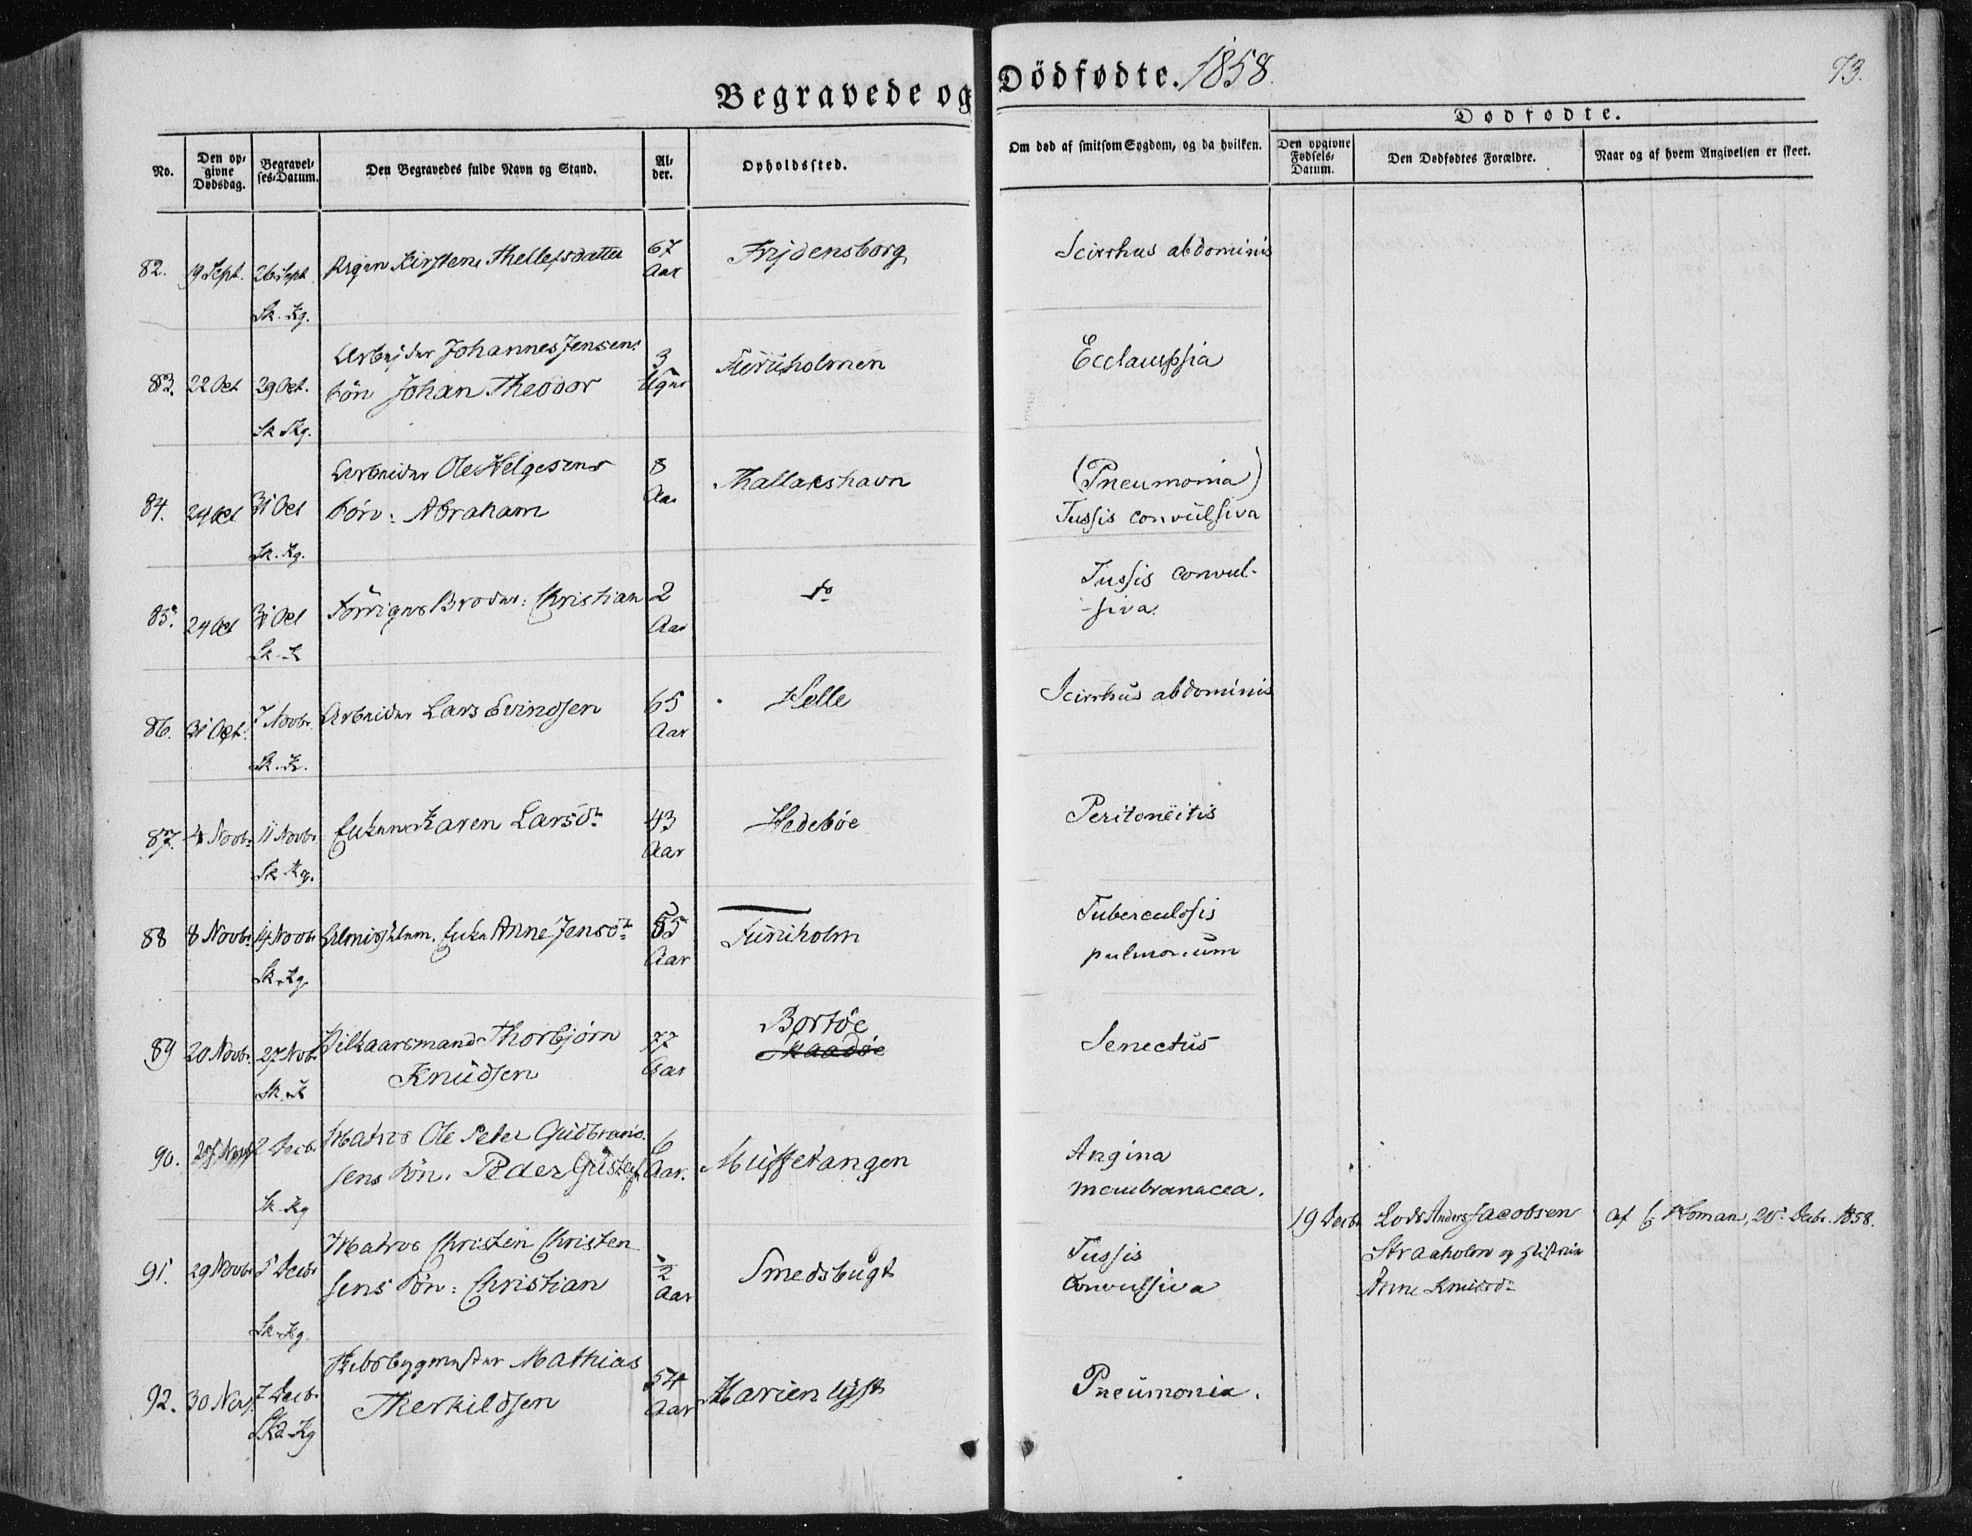 Begravede og Dödfødte. 1858.
73.
No.
Den opgivne Dødsdag.
Begravelses-Datum.
Den Begravedes fulde Navn og Stand.
Alder.
Opholdssted.
Om død af smitsom Sygdom, og da hvilken.
Dødfødte.
Den opgivne Fødsels-Datum.
Den Dødfødtes Forældre.
Naar og af hvem Angivelsen er skeet.
82. 19 Sept. 26 Sept. Kirsten Thellefsdatter 67 Frydensborg Scirrhus abdominis
Sk. Kg. Aar
83. 22 Oct 29 Oct. Arbeider Johannes Jensens 3 Furuholmen Ecclampsia
Sk Kg. Søn Johan Theodor Ugur
84. 24 Oct 31 Oct Arbeider Ole Helgesens 8 Thallakshavn (Pneumonia)
Sk. Kg. Søn: Abraham Aar Tussis convulsiva
85. 24 Oct 31 Oct Forriges Broder: Christian 2 do Tussis convul-
Sk. K Aar siva.
86. 31 Oct. 7 Novbr Arbeider Lars Evindsen 65 Helle Scirrhus abdominis
Sk. K. Aar
87. 4 Novbr 11 Novbr Enken Karen Larsdr 43 Hedebøe Peritoneitis
Sk Kg. Aar
88 8 Novbr 14 Novbr Almisselem. Enke Anne Jensdr 55 Furuholm Tuberculosis
Sk. Kg. Aar pulmonum
89 20 Novbr. 27 Novbr Vilkaarsmand Thorbjørn 77 Bortøe Senectus
Sk. K Knudsen Aar Skaadøe
90. 27 Novbr 2 Decb. Matros Ole Peter Gudbrand- 6 Muffetangen Angina
Sk. Kg sens Søn. Peder Gustaf Aar. membranacea.
91. 29 Novbr 5 Decbr Matros Christen Christen- 1/2 Smedsbugt Tussis
Sk. Kg. sens Søn: Christian Aar Convulsiva
19 Decbr Lods Anders Jacobsen af Homan, 20. Decbr. 1858.
Straaholm og Hustru
Anne Knudsdr
92. 30 Nov 7 Decb. Skibsbygmester Mathias 54 Marienlyst Pneumonia.
Sk. Kg Therkildsen Aar